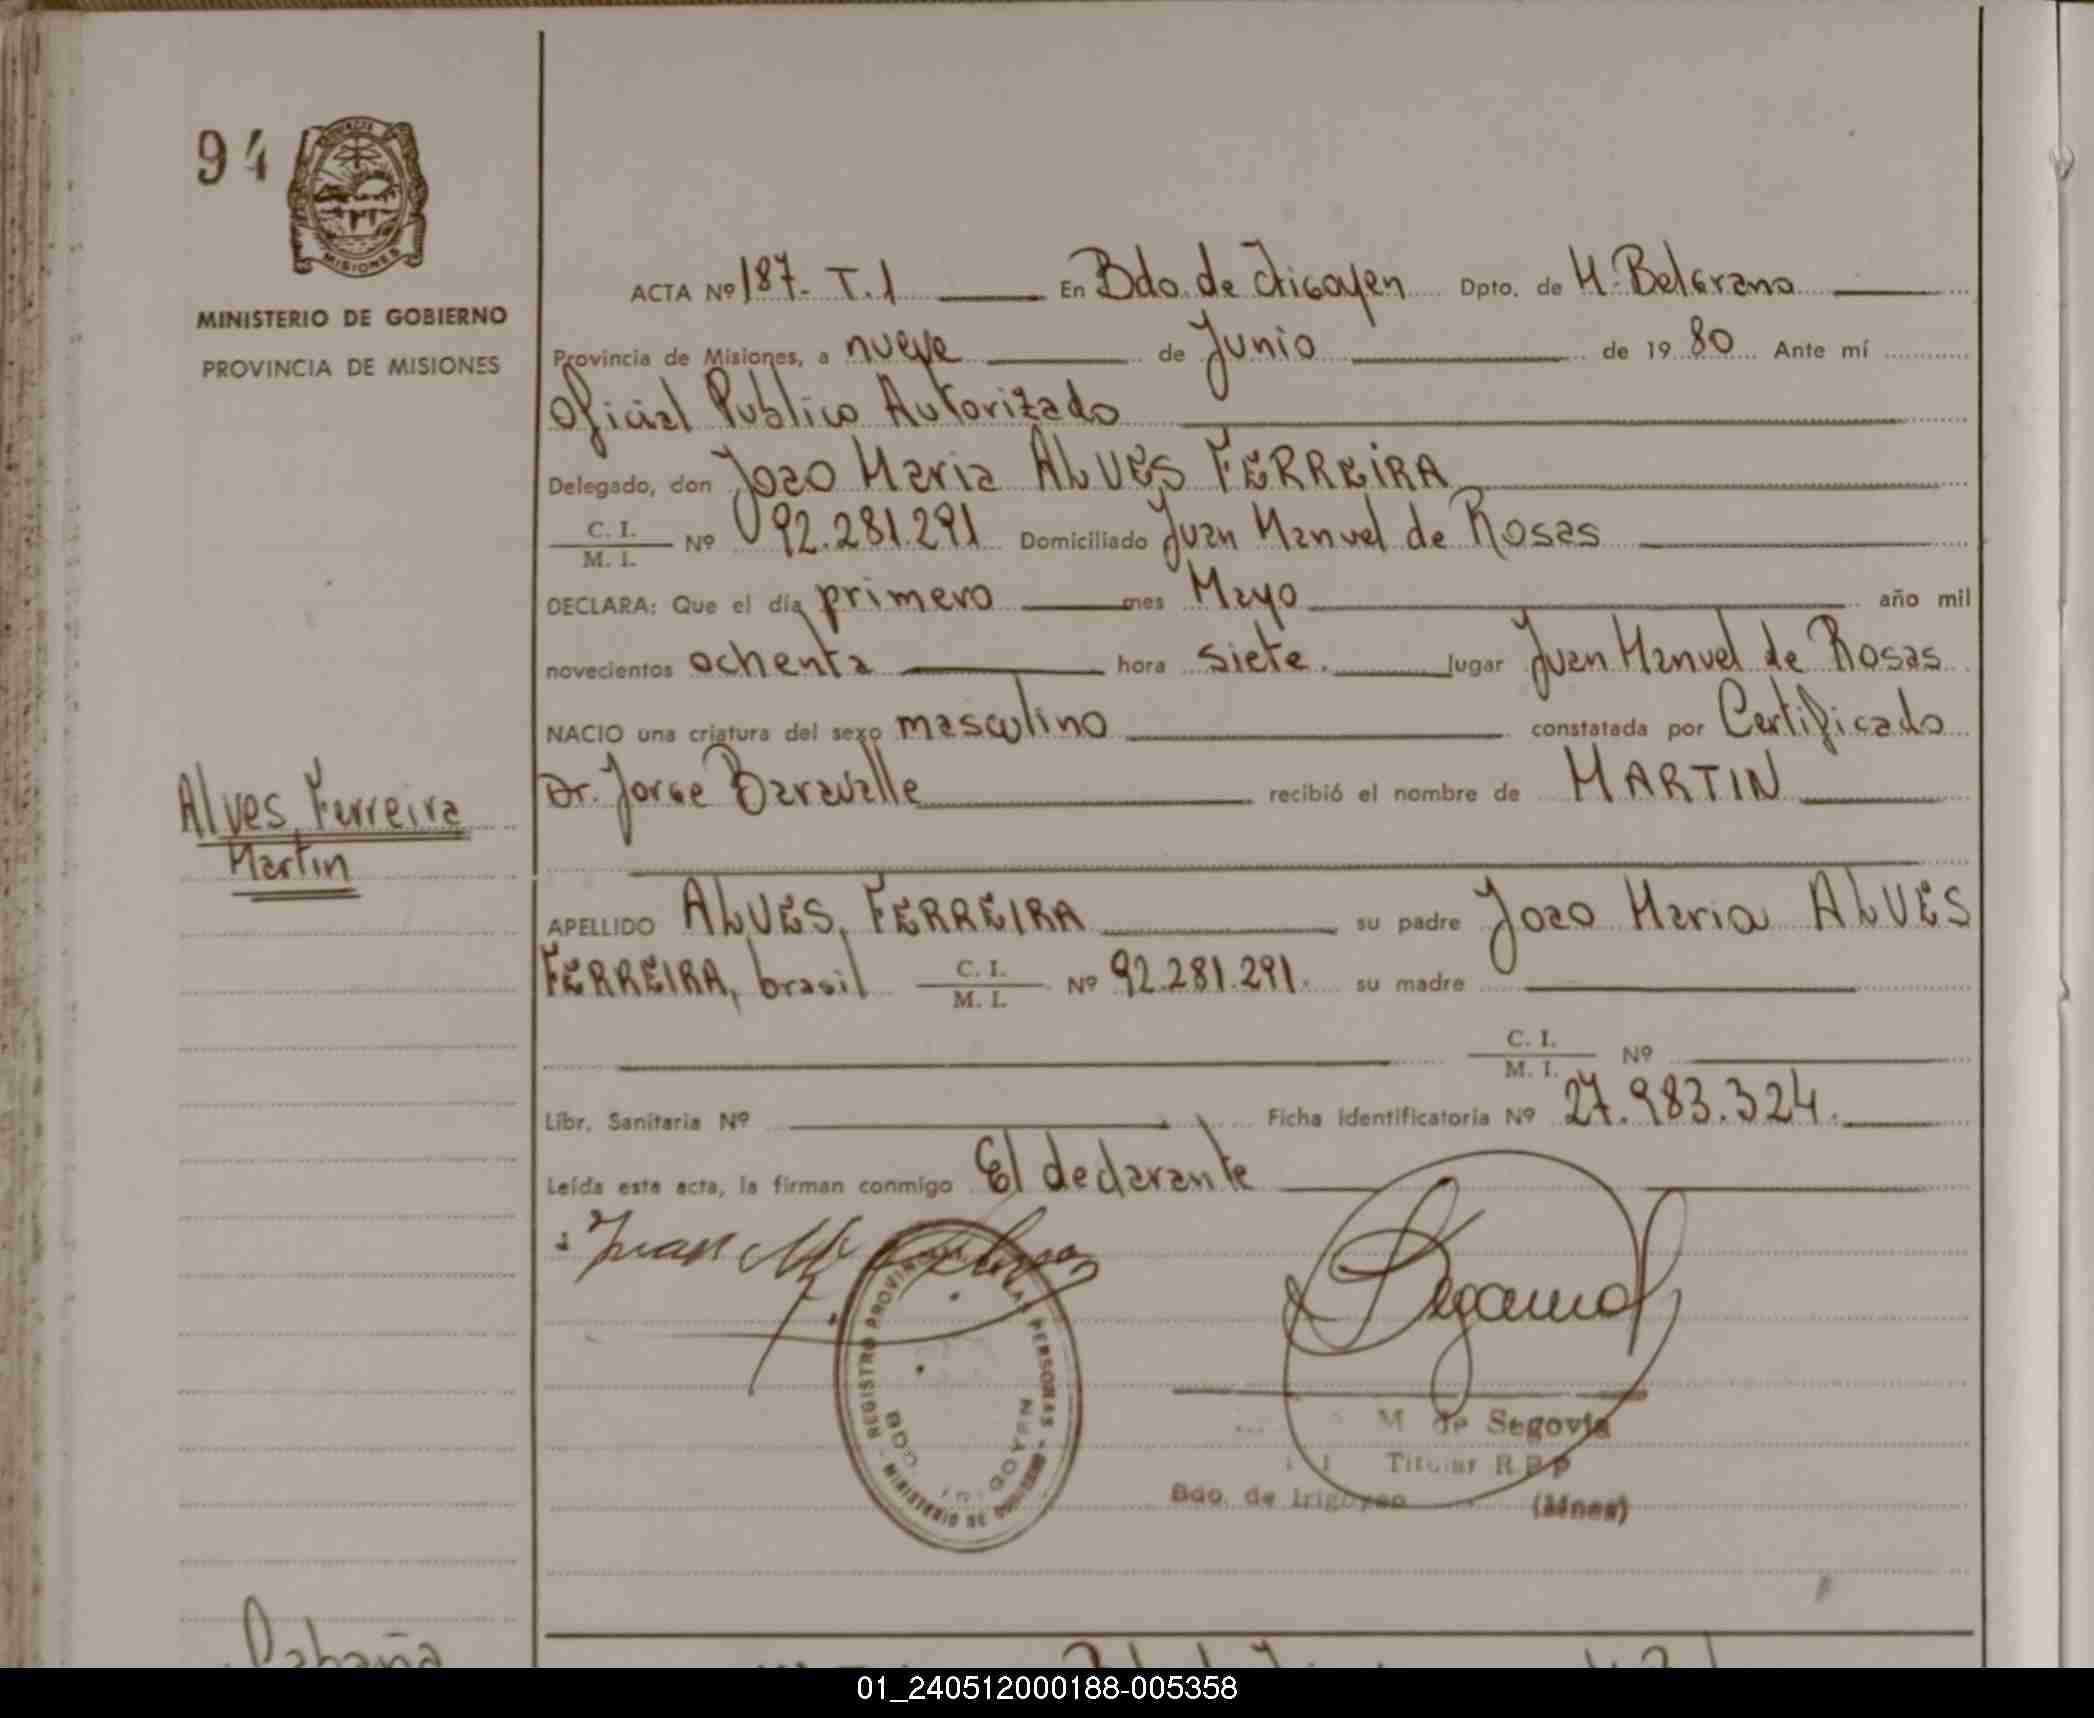 94
MISIONES
MINISTERIO DE GOBIERNO
PROVINCIA DE MISIONES
Alves Ferreira
Martin
ACTA Nº 187- T.1 En Bdo. de Irigoyen Dpto. de M. Belgrano
Provincia de Misiones, a nueve de Junio de 19 80 Ante mí
Oficial Publico Autorizado
Delegado, don Joao Maria ALVES FERREIRA
C. I.
M. I. Nº 92.281.291 Domiciliado Juan Manuel de Rosas
DECLARA: Que el día primero mes Mayo año mil
novecientos ochenta hora siete. lugar Juan Manuel de Rosas
NACIO una criatura del sexo masculino constatada por Certificado
Dr. Jorge Baravalle recibió el nombre de MARTIN
APELLIDO ALVES, FERREIRA su padre Joao Maria ALVES
FERREIRA, brasil C. I.
M. I. Nº 92.281.291. su madre
C. I.
M. I. Nº
Libr. Sanitaria Nº Ficha identificatoria Nº 27.983.324.
Leída este acta, la firman conmigo El declarante
REGISTRO PROVIN LAS PERSONAS
MINISTERIO DE
BDO. IRIGOYEN
M de Segovia
Titular R.P.P
Bdo. de Irigoyen (Mnes)
Cabaña
01_240512000188-005358